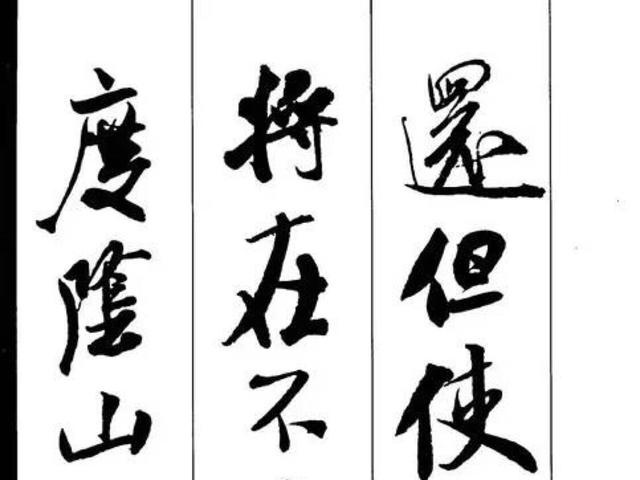 還但使
將在不
度陰山